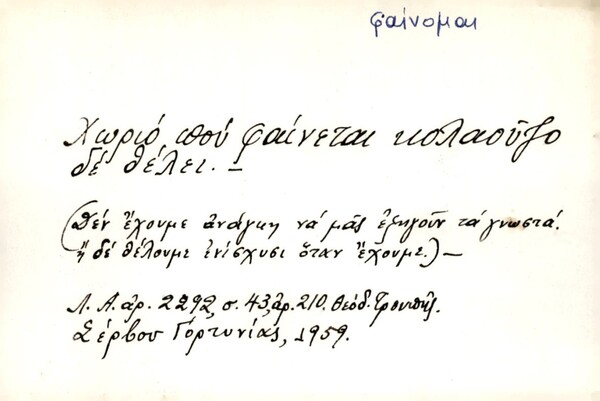 φαίνομαι
Χωριό πού φαίνεται κολαοῦζο
δέ θέλει. –
(Δέν ἔχουμε ἀνάγκη νά μᾶς ἐξηγοῦν τά γνωστά.
ἤ δέ θέλουμε ἐνίσχυσι ὅταν ἔχουμε.) –
Λ. Α. ἀρ. 2292, σ. 43, ἀρ. 210. Θεόδ. Τρουπῆς.
Σέρβου Γορτυνίας, 1959.